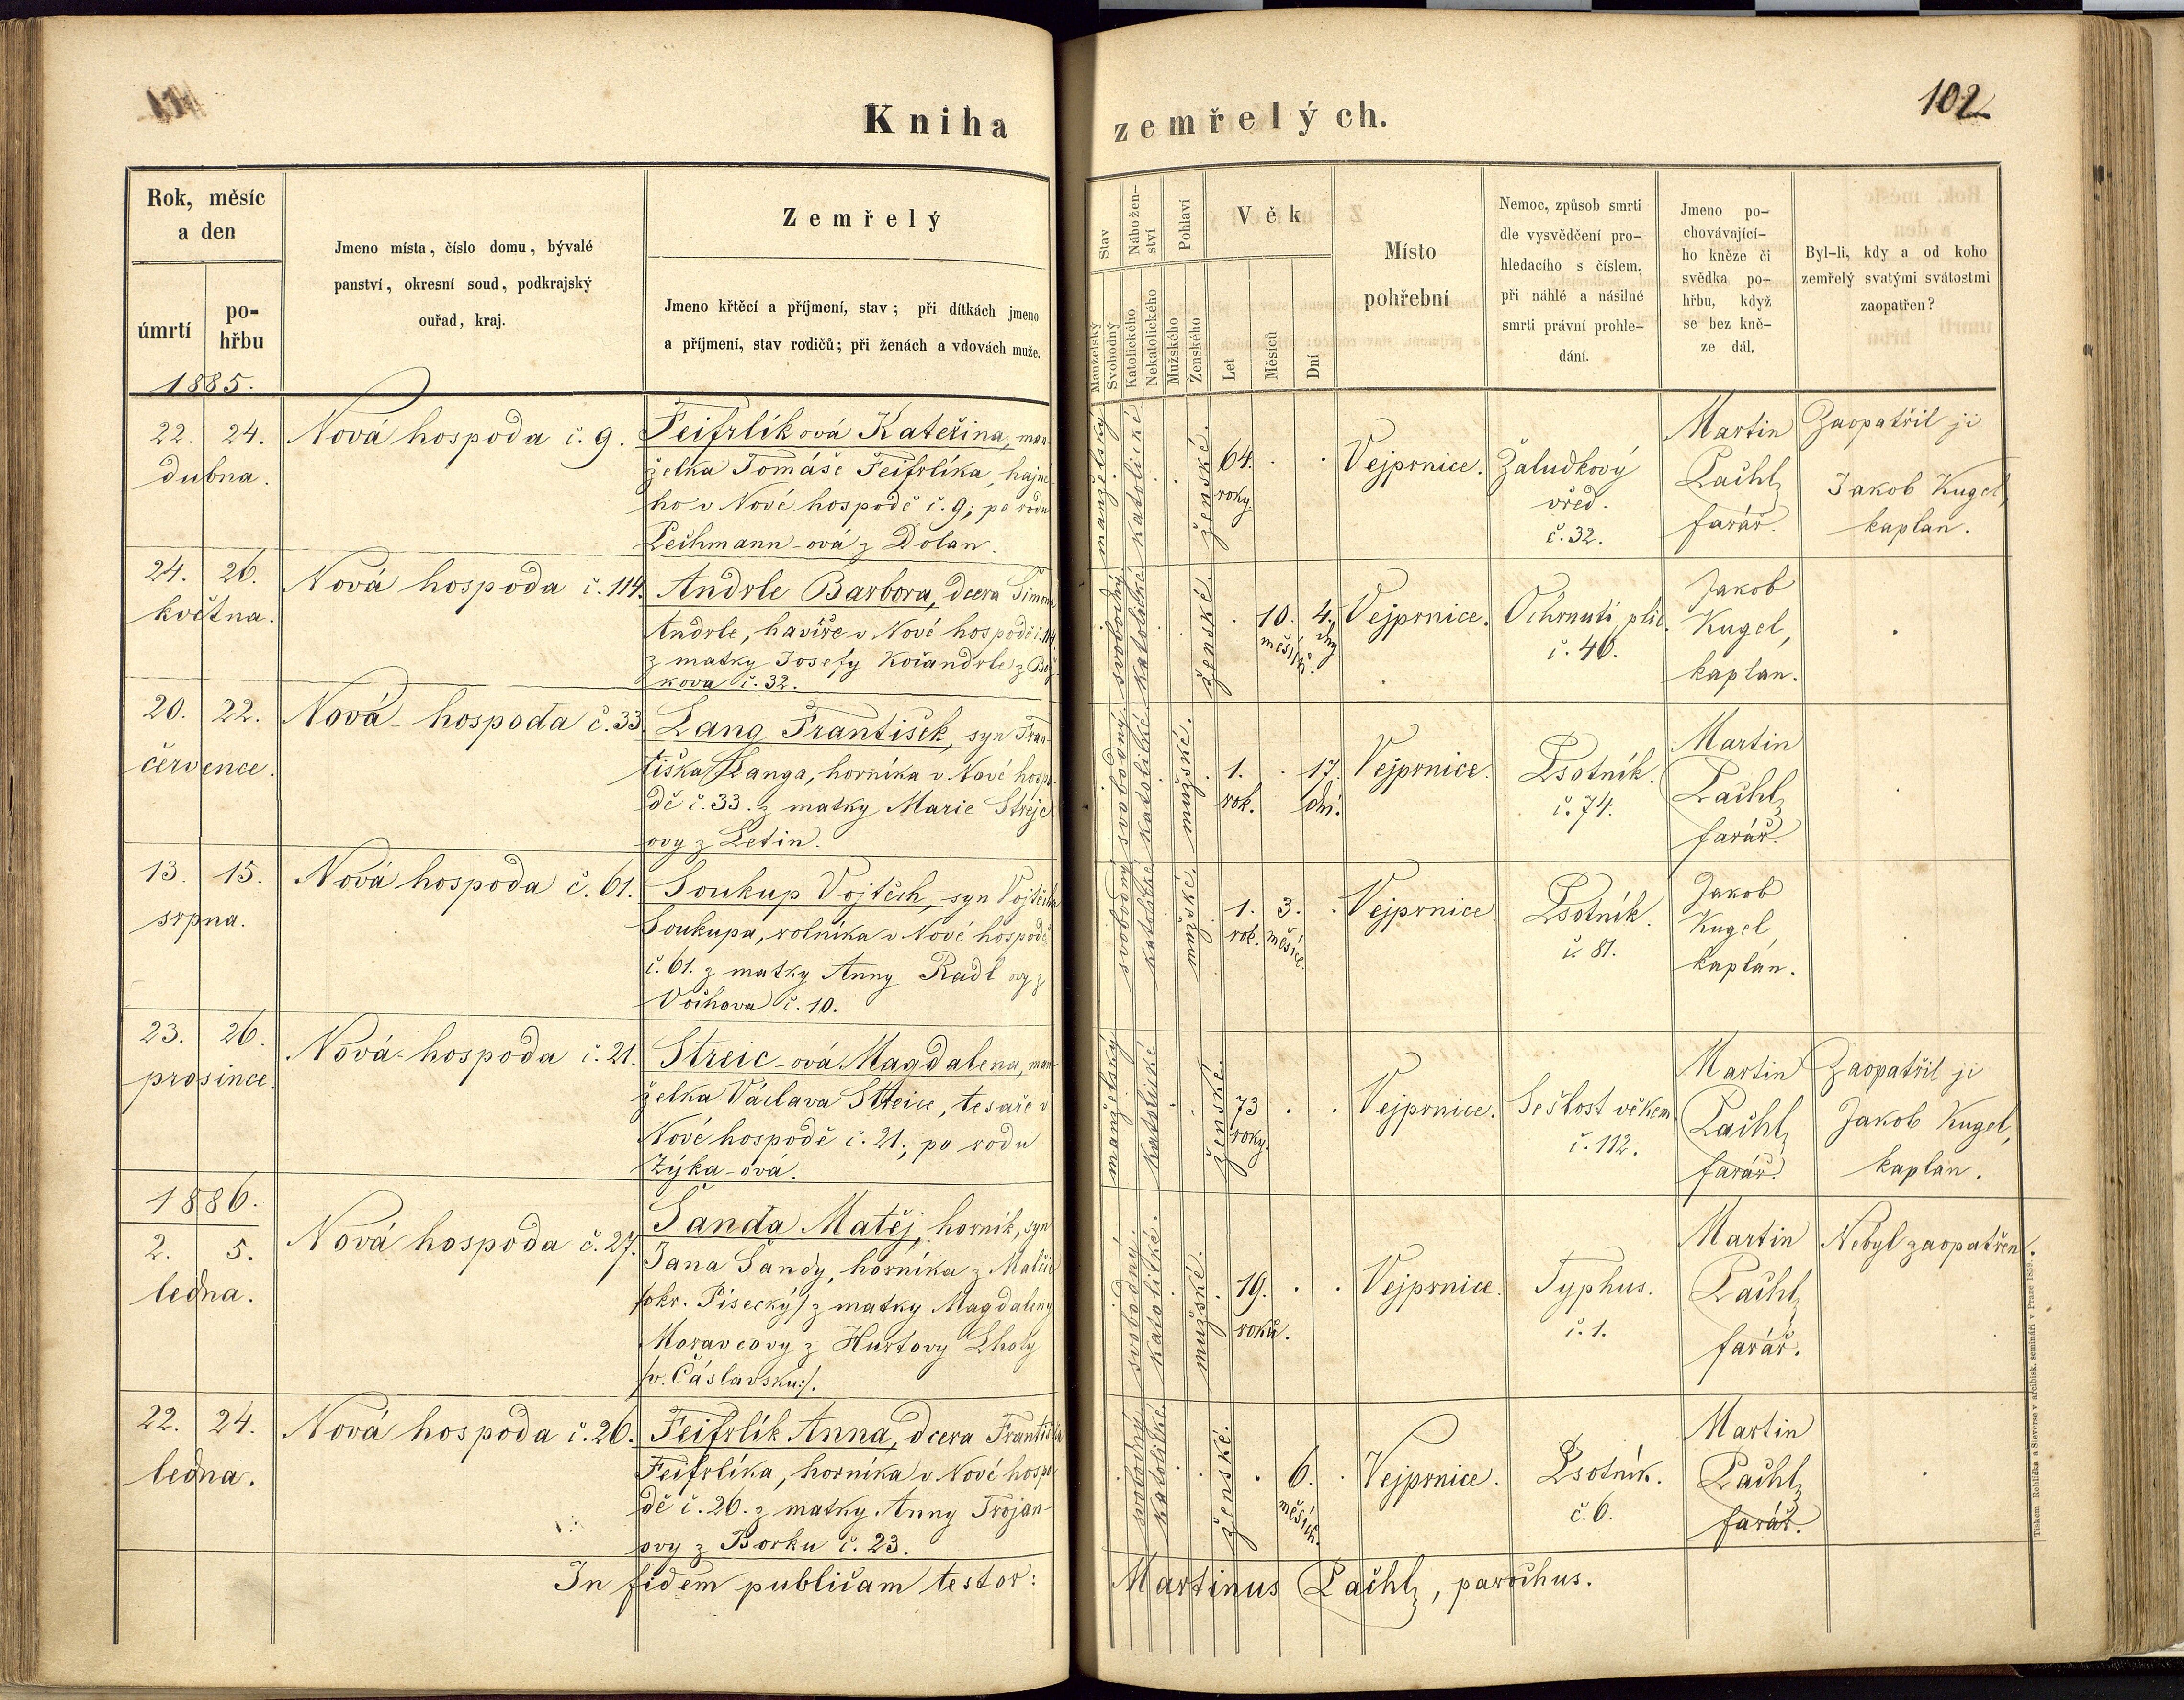 Kniha zemřelých.
102
Rok, měsíc
a den
úmrtí
po-
hřbu
1885.
Jmeno místa, číslo domu, bývalé
panství, okresní soud, podkrajský
ouřad, kraj.
Zemřelý
Jmeno křtěcí a příjmení, stav; při dítkách jmeno
a příjmení, stav rodičů; při ženách a vdovách muže.
Stav
Manželský
Svobodný
Nábožen-
ství
Katolického
Nekatolického
Pohlaví
Mužského
Ženského
Věk
Let
Měsíců
Dní
Místo
pohřební
Nemoc, způsob smrti
dle vysvědčení pro-
hledacího s číslem,
při náhlé a násilné
smrti právní prohle-
dání.
Jmeno po-
chovávající-
ho kněze či
svědka po-
hřbu, když
se bez kně-
ze dál.
Byl-li, kdy a od koho
zemřelý svatými svátostmi
zaopatřen?
22. 24.
dubna.
Nová hospoda č. 9.
Feifrlíková Kateřina, man-
želka Tomáše Feifrlíka, hajné-
ho v Nové hospodě č. 9; po rodu
Pechmann-ová z Dolan.
manželský
katolické
ženské.
64.
roky.
Vejprnice.
Žaludkový
vřed.
č. 32.
Martin
Pachl,
farář.
Zaopatřil ji
Jakob Kugel,
kaplan.
24. 26.
května.
Nová hospoda č. 114.
Andrle Barbora, dcera Šimona
Andrle, havíře v Nové hospodě č. 114.
z matky Josefy Kočandrle z Bož-
kova č. 32.
svobodný
katolické
ženské.
10. 4.
měsíců. dny
Vejprnice.
Ochrnutí plic.
č. 46.
Jakob
Kugel,
kaplan.
20. 22.
července.
Nová-hospoda č. 33
Lang František, syn Fran-
tiška Langa, horníka v Nové hospo-
dě č. 33. z matky Marie Strejc
ovy z Letin.
svobodný
katolické
mužské.
1. 17.
rok. dní.
Vejprnice.
Psotník.
č. 74.
Martin
Pachl,
farář.
13. 15.
srpna.
Nová hospoda č. 61.
Soukup Vojtěch, syn Vojtěcha
Soukupa, rolníka v Nové hospodě
č. 61. z matky Anny Radlovy z
Vochova č. 10.
svobodný
katolické
mužské.
1. 3.
rok. měsíce.
Vejprnice.
Psotník.
č. 81.
Jakob
Kugel,
kaplan.
23. 26.
prosince.
Nová-hospoda č. 21.
Streic-ová Magdalena, man-
želka Václava Streice, tesaře v
Nové hospodě č. 21.; po rodu
Zýka-ová.
manželský
katolické
ženské.
73
roky.
Vejprnice.
Sešlost věkem.
č. 112.
Martin
Pachl,
farář.
Zaopatřil ji
Jakob Kugel,
kaplan.
1886.
2. 5.
ledna.
Nová hospoda č. 27.
Šanda Matěj, horník, syn
Jana Šandy, horníka z
/okr. Písecký/ z matky Magdaleny
Moravcovy z Hurtovy Lhoty
/v. Čáslavsku:/.
svobodný.
katolické.
mužské.
19.
roků.
Vejprnice.
Typhus.
č. 1.
Martin
Pachl,
farář.
Nebyl zaopatřen.
22. 24.
ledna.
Nová hospoda č. 26.
Feifrlík Anna, dcera Františka
Feifrlíka, horníka v Nové hospo-
dě č. 26. z matky Anny Trojan-
ovy z Borku č. 23.
svobodný
katolické
ženské.
6.
měsíců.
Vejprnice.
Psotník.
č. 6.
Martin
Pachl,
farář.
In fidem publicam testor: Martinus Pachl, parochus.
Tiskem Rohlíčka a Sieverse v arcibisk. semináři v Praze 1859.